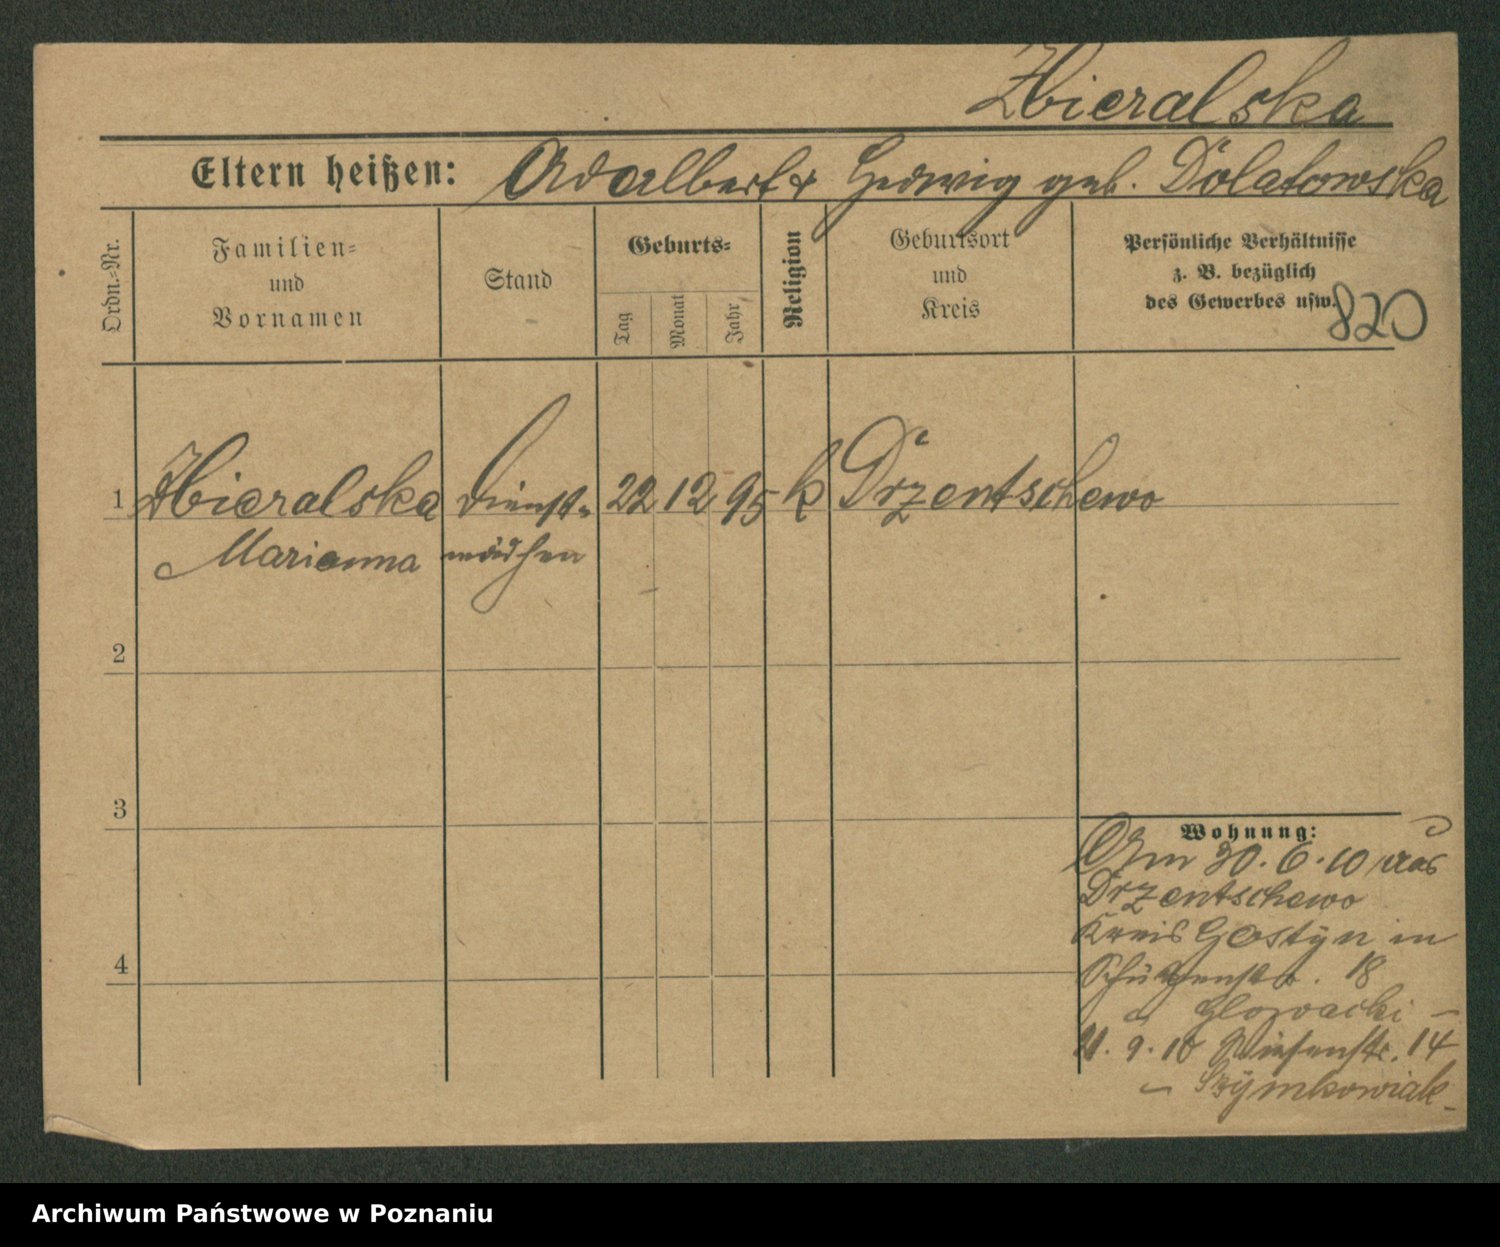 Zbieralska
Eltern heißen: Adalbert & Hedwig geb. Dolatowska
Ordn.=Nr.
Familien=
und
Vornamen
Stand
Geburts=
Tag
Monat
Jahr
Religion
Geburtsort
und
Kreis
Persönliche Verhältnisse
z. B. bezüglich
des Gewerbes usw.
820
1 Zbieralska Dienst= 22 12 95 k Drzentschewo
Marianna mädchen
2
3
4
Wohnung:
Am 30. 6. 10 aus
Drzentschewo
Kreis Gostyn in
Schützenstr. 18
Glowacki –
21. 9. 10 Wiesenstr. 14
– Szymkowiak –
Archiwum Państwowe w Poznaniu